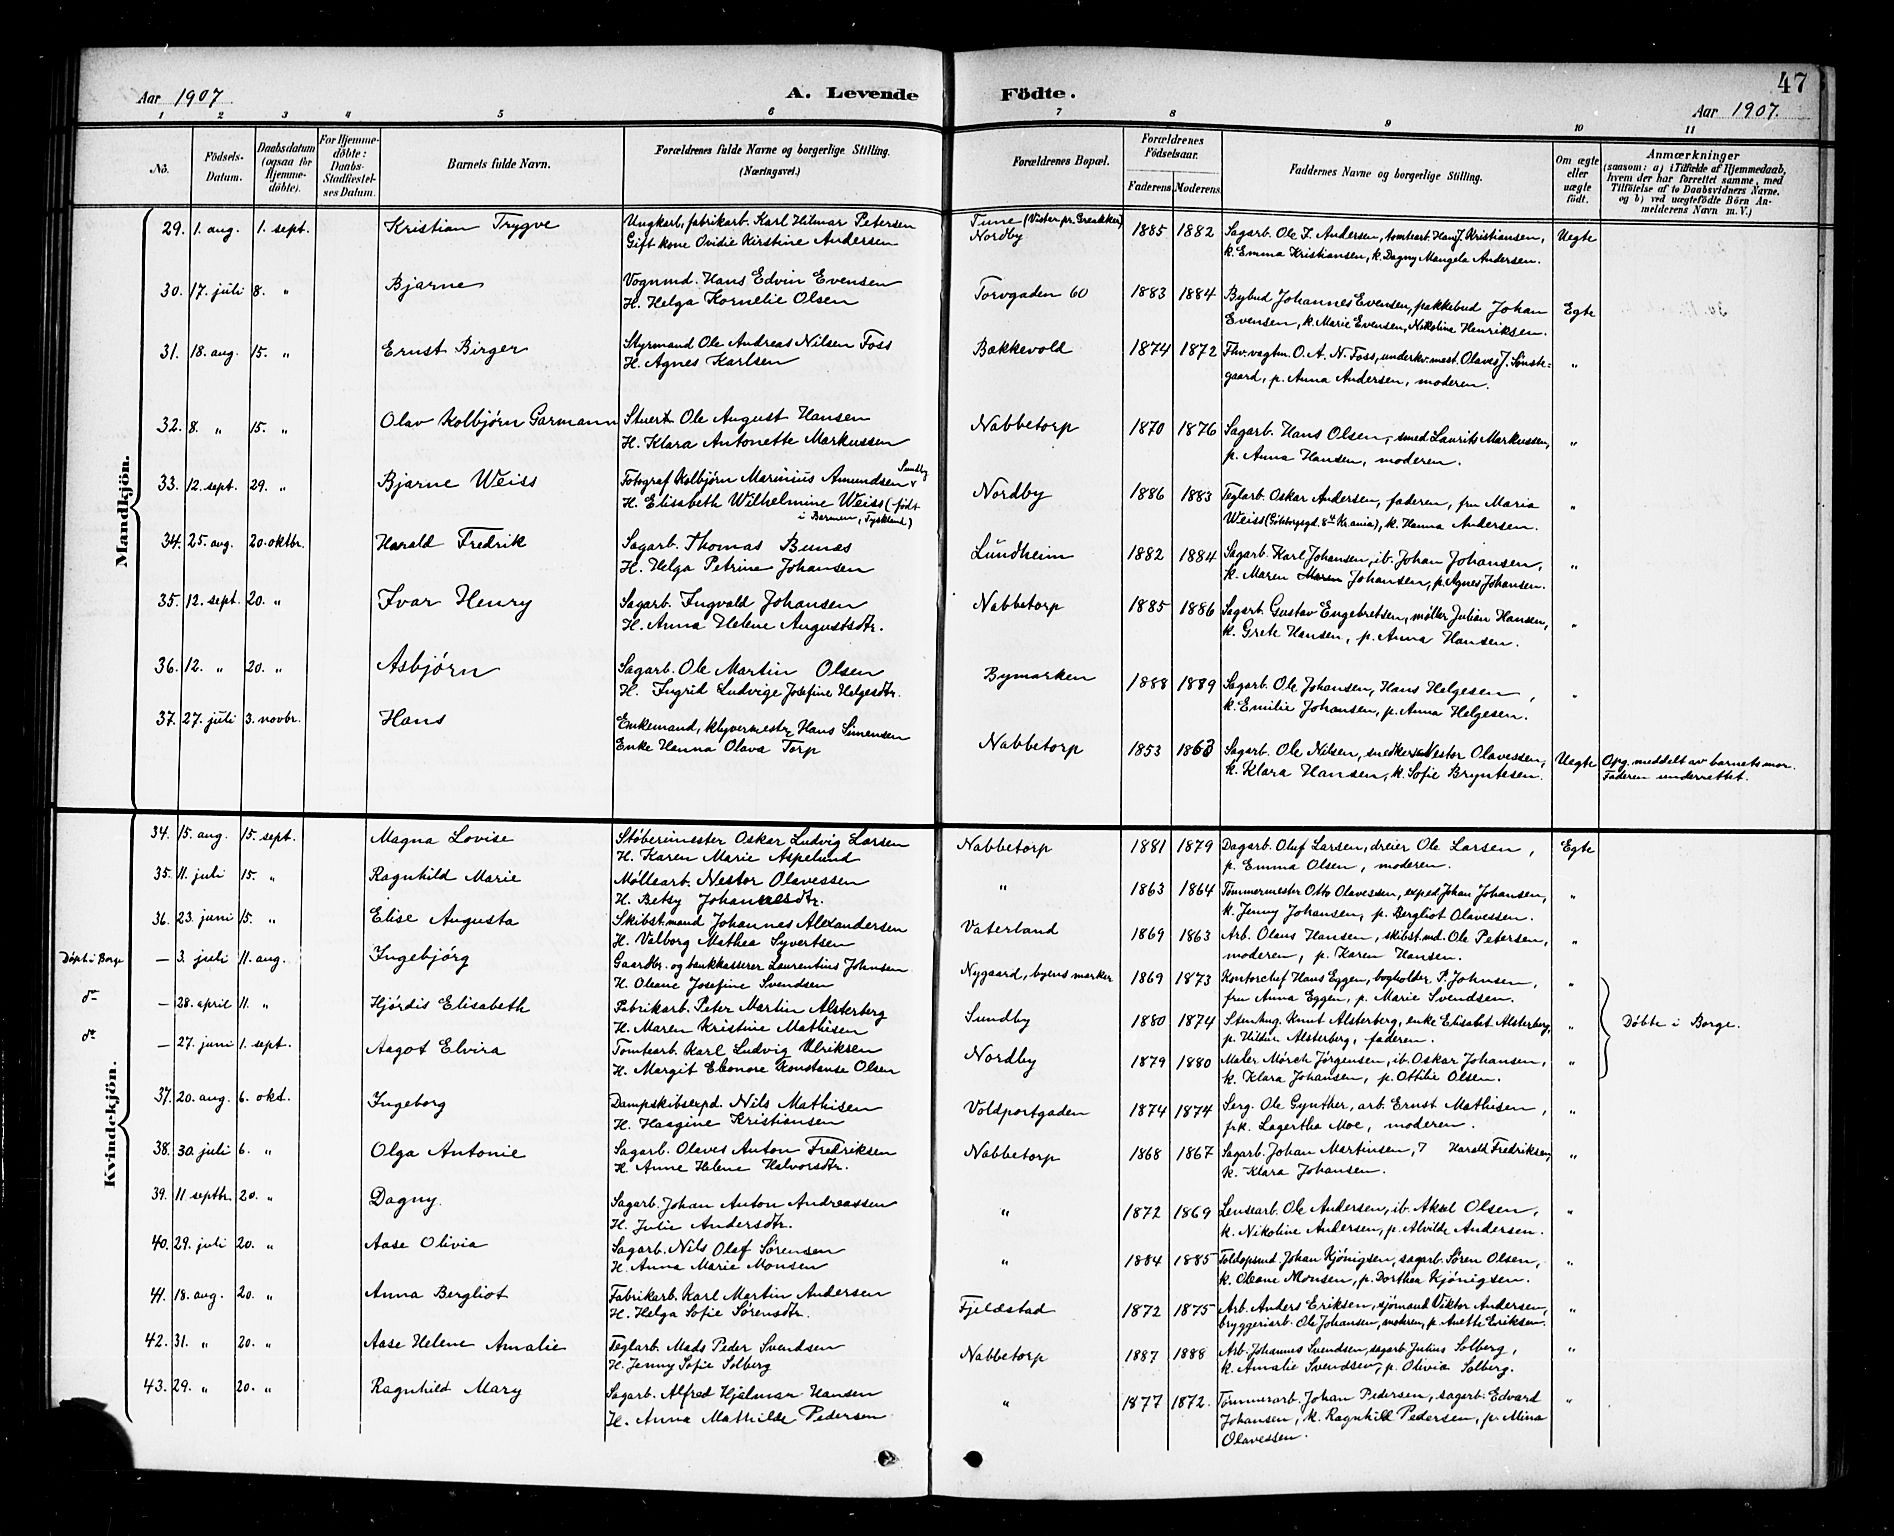 Aar 1907.
A. Levende Födte.
47
Aar 1907.
1 2 3 4 5 6 7 8 9 10 11
No.
Födsels-Datum.
Daabsdatum (ogsaa for Hjemme-döbte).
For Hjemme-döbte: Daabs-Stadfæstel-ses Datum.
Barnets fulde Navn.
Forældrenes fulde Navne og borgerlige Stilling. (Næringsvei.)
Forældrenes Bopæl.
Forældrenes Födselsaar.
Faderens. Moderens.
Faddernes Navne og borgerlige Stilling.
Om ægte eller uægte födt.
Anmærkninger (saasom: a) i Tilfælde af Hjemmedaab, hvem der har forrettet samme, med Tilföielse af to Daabsvidners Navne, og b) ved uægtefödte Börn An-melderens Navn m. V.)
Mandkjön.
29. 1. aug. 1. sept. Kristian Trygve Ungkarl, fabrikarb. Karl Hilmar Petersen Tune (Vister pr. Greaaker) 1885 1882 Sagarb. Ole J. Andersen, tomtearb. Hans J. Kristiansen, Uegte
Gift kone Ovidie Kirstine Andersen Nordby k. Emma Kristiansen, k. Dagny Mangela Andersen.
30. 17. juli 8. " Bjarne Vognmd. Hans Edvin Evensen Torvgaden 60 1883 1884 Bybud Johannes Evensen, pakkebud Johan Egte
H. Helga Kornelie Olsen Evensen, k. Marie Evensen, Nikoline Henriksen.
31. 18. aug. 15. " Ernst Birger Styrmand Ole Andreas Nilsen Foss Bakkevold 1874 1872 Fhv. vagtm. O. A. N. Foss, underkv.mest. Olaves J. Sønste- "
H. Agnes Karlsen gaard, p. Anna Andersen, moderen.
32. 8. " 15. " Olav Kolbjørn Garmann Stuert Ole August Hansen Nabbetorp 1870 1876 Sagarb. Hans Olsen, smed Laurits Markussen, "
H. Klara Antonette Markussen p. Anna Hansen, moderen.
33. 12. sept. 29. " Bjarne Weiss Fotograf Kolbjørn Marinius Amundsen Sundby Nordby 1886 1883 Teglarb. Oskar Andersen, faderen, fru Maria "
H. Elisabeth Wilhelmine Weiss (født i Barmen, Tyskland) Weiss (Göteborgsgd. 8 Kr.ania), k. Hanna Andersen.
34. 25. aug. 20. oktbr. Harald Fredrik Sagarb. Thomas Bunæs Lundheim 1882 1884 Sagarb. Karl Johansen, ib. Johan Johansen, "
H. Helga Petrine Johansen k. Maren Johansen, p. Agnes Johansen.
35. 12. sept. 20. " Ivar Henry Sagarb. Ingvald Johansen Nabbetorp 1885 1886 Sagarb. Gustav Engebretsen, møller Julian Hansen, "
H. Anna Helene Augustsdtr. k. Grete Hansen, p. Anna Hansen.
36. 12. " 20. " Asbjørn Sagarb. Ole Martin Olsen Bymarken 1888 1889 Sagarb. Ole Johansen, Hans Helgesen, "
H. Ingrid Ludvige Josefine Helgesdtr. k. Emilie Johansen, p. Anna Helgesen.
37. 27. juli 3. novbr. Hans Enkemand, klyvermestr. Hans Simensen Nabbetorp 1853 1863 Sagarb. Ole Nilsen, snedker Nestor Olavessen, Uegte Opg. meddelt av barnets mor.
Enke Hanna Olava Torp k. Klara Hansen, k. Sofie Bryntesen. Faderen underrettet.
Kvindekjön.
34. 15. aug. 15. sept. Magna Lovise Støberimester Oskar Ludvig Larsen Nabbetorp 1881 1879 Dagarb. Oluf Larsen, dreier Ole Larsen, Egte
H. Karen Marie Aspelund p. Emma Olsen, moderen.
35. 11. juli 15. " Ragnhild Marie Møllearb. Nestor Olavessen " 1863 1864 Tømmermester Otto Olavessen, exped. Johan Johansen, "
H. Betsy Johannesdtr. k. Jenny Johansen, p. Bergliot Olavessen.
36. 23. juni 15. " Elise Augusta Skibstmand Johannes Alexandersen Vaterland 1869 1863 Arb. Olaus Hansen, skibst.md. Ole Petersen, "
H. Valborg Mathea Syvertsen moderen, p. Karen Hansen.
Døpt i Borge — 3. juli 11. aug. Ingebjørg Gaardbr. og bankkasserer Laurentius Johnsen Nygaard, byens marker 1869 1873 Kontorchef Hans Eggen, bogholder P. Johnsen, "
H. Oleane Josefine Svendsen fru Anna Eggen, p. Marie Svendsen.
do — 28. april 11. " Hjørdis Elisabeth Fabrikarb. Peter Martin Alsterberg Sundby 1880 1874 Stenhug. Knut Alsterberg, enke Elisabet Alsterberg, " Døbte i Borge.
H. Maren Kristine Mathisen p. Hildur Alsterberg, faderen.
do — 27. juni 1. sept. Aagot Elvira Tomtearb. Karl Ludvig Ulriksen Nordby 1879 1880 Maler Mørch Jørgensen, ib. Oskar Johansen, "
H. Margit Eleonore Konstanse Olsen k. Klara Johansen, p. Ottilie Olsen.
37. 20. aug. 6. okt. Ingeborg Dampskibsexpd. Nils Mathisen Voldportgaden 1874 1874 Serg. Ole Gynther, arb. Ernst Mathisen, "
H. Haagine Kristiansen frk. Lagertha Moe, moderen.
38. 30. juli 6. " Olga Antonie Sagarb. Olaves Anton Fredriksen Nabbetorp 1868 1867 Sagarb. Johan Martinsen, 7 Harald Fredriksen, "
H. Anne Helene Halvorsdtr. k. Klara Johansen.
39. 11. septbr. 20. " Dagny. Sagarb. Johan Anton Andreassen " 1872 1869 Lensearb. Ole Andersen, ib. Aksel Olsen, "
H. Julie Andersdtr. k. Nikoline Andersen, p. Alvilde Andersen.
40. 29. juli 20. " Aase Olivia Sagarb. Nils Olaf Sørensen " 1884 1885 Toldopsmd. Johan Kjønigsen, sagarb. Søren Olsen, "
H. Anna Marie Monsen k. Oleane Monsen, p. Dorthea Kjønigsen.
41. 18. aug. 20. " Anna Bergliot Fabrikarb. Karl Martin Andersen Fjeldstad 1872 1875 Arb. Anders Eriksen, sjømand Viktor Andersen, "
H. Helga Sofie Sørensdtr. bryggeriarb. Ole Johansen, moderen, p. Anette Eriksen.
42. 31. " 20. " Aase Helene Amalie Teglarb. Mads Peder Svendsen Nabbetorp 1887 1888 Arb. Johannes Svendsen, sagarb. Julius Solberg, "
H. Jenny Sofie Solberg k. Amalie Svendsen, p. Olivia Solberg.
43. 29. " 20. " Ragnhild Mary Sagarb. Alfred Hjalmar Hansen " 1877 1872. Tømmerarb. Johan Pedersen, sagarb. Edvard "
H. Anna Mathilde Pedersen Johansen, k. Ragnhild Pedersen, p. Mina
Olavessen.